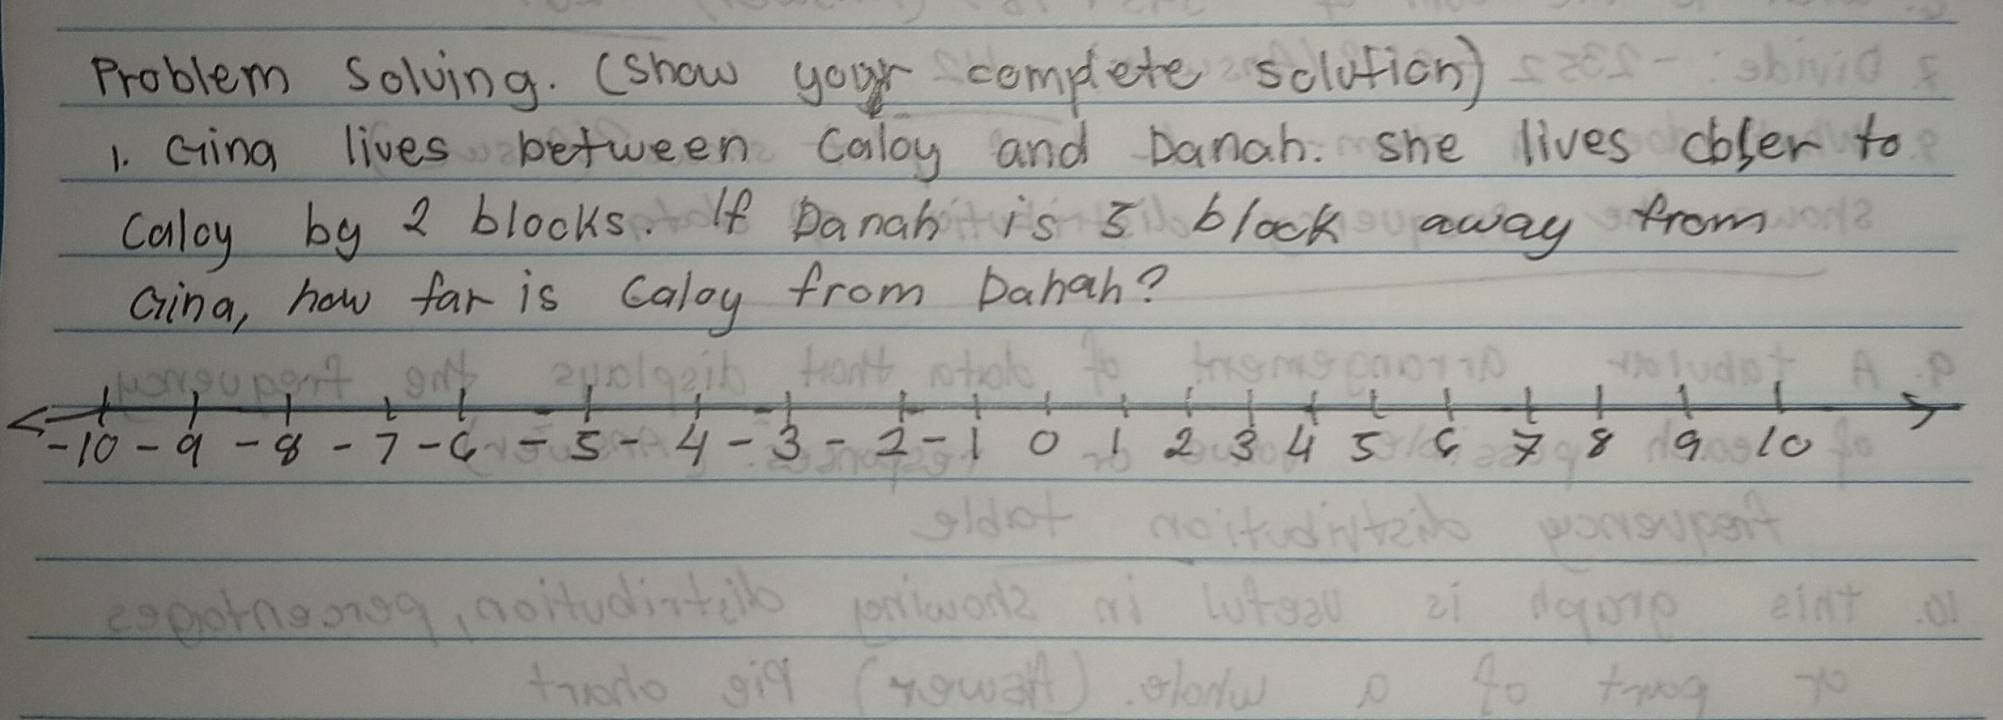 Problem Solving. (Show your complete solution)
1. Gina lives between Caloy and Danah. She lives closer to
Caloy by 2 blocks. If Danah is 5 block away from
Gina, how far is Caloy from Danah?
-10 -9 -8 -7 -6 -5 -4 -3 -2 -1 0 1 2 3 4 5 6 7 8 9 10